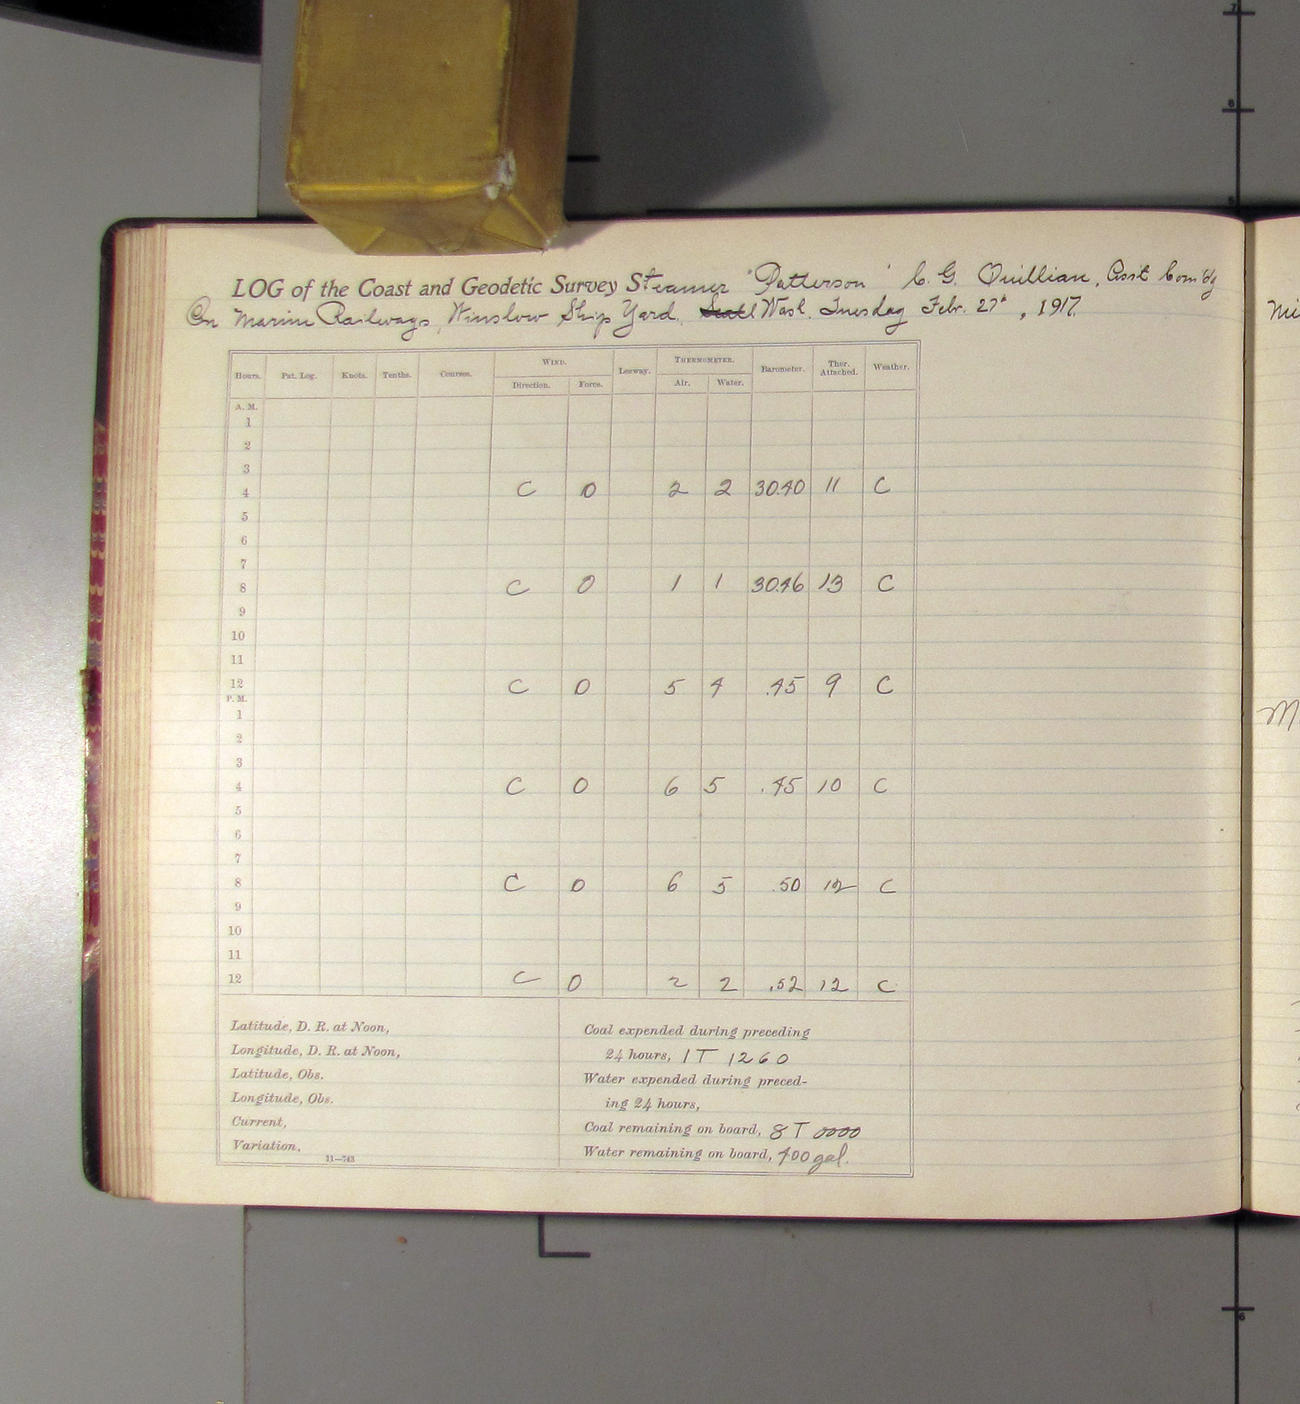 LOG of the Coast and Geodetic Survey Steamer "Patterson" C. G. Quillian, Asst Com'd'g
On Marine Railways, Winslow Ship Yard, Wash. Tuesday Febr. 27th, 1917.
WIND. THERMOMETER.
Hours. Pat. Log. Knots. Tenths. Courses. Direction. Force. Leeway. Air. Water. Barometer. Ther. Attached. Weather.
A. M.
1
2
3
4 C 0 2 2 30.40 11 C
5
6
7
8 C 0 1 1 30.46 13 C
9
10
11
12 C 0 5 4 .45 9 C
P. M.
1
2
3
4 C 0 6 5 .45 10 C
5
6
7
8 C 0 6 5 .50 12 C
9
10
11
12 C 0 2 2 .52 12 C
Latitude, D. R. at Noon,
Longitude, D. R. at Noon,
Latitude, Obs.
Longitude, Obs.
Current,
Variation,
11—743
Coal expended during preceding
24 hours, 1 T 1260
Water expended during preced-
ing 24 hours,
Coal remaining on board, 8 T 0000
Water remaining on board, 400 gal.